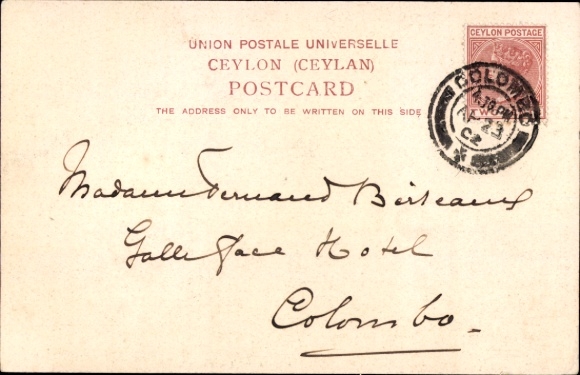 UNION POSTALE UNIVERSELLE
CEYLON POSTAGE
CEYLON (CEYLAN)
POSTCARD
THE ADDRESS ONLY TO BE WRITTEN ON THIS SIDE
COLOMBO
AP 23
02
Madame Fernand
Galle Face Hotel
Colombo.